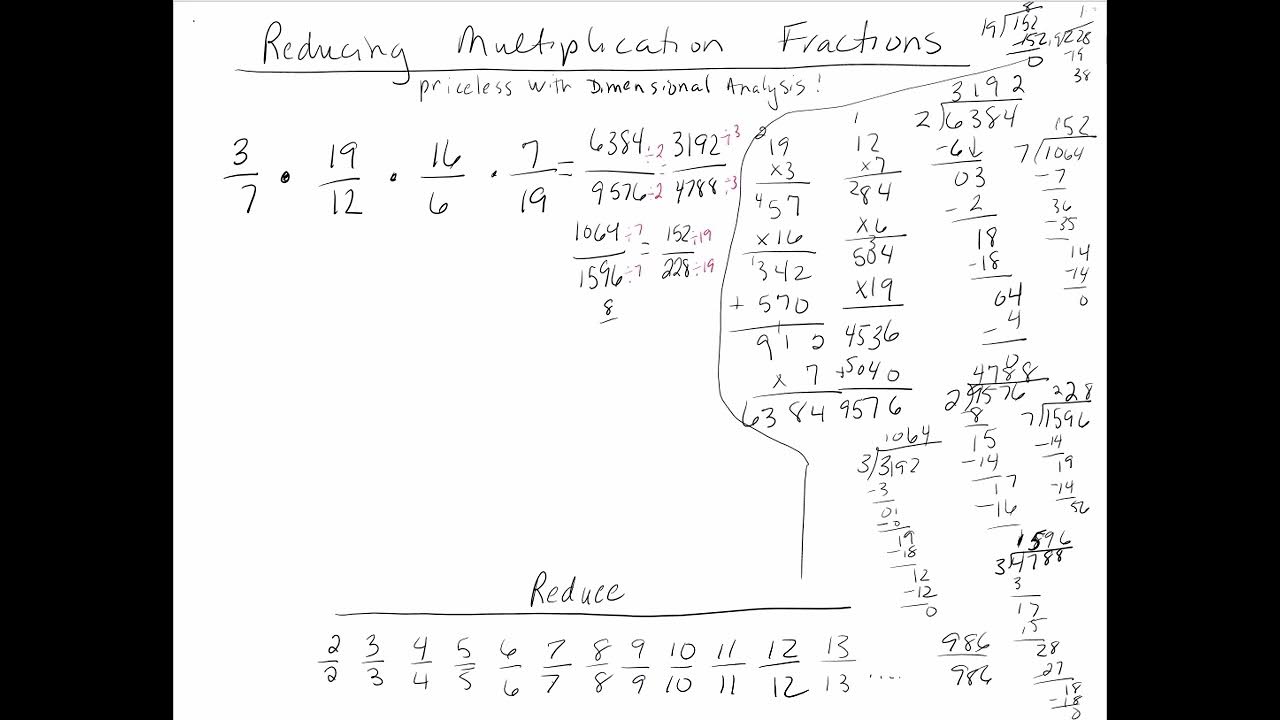 Reducing Multiplication Fractions
priceless with Dimensional Analysis!
3/7 · 19/12 · 16/6 · 7/19 = 6384÷2/9576÷2 = 3192÷3/4788÷3
1064÷7/1596÷7 = 152÷19/228÷19
8
19
x3
57
x16
342
+ 570
912
x 7
6384
12
x7
84
x6
504
x19
4536
+5040
9576
8
19)152
-152
0
1
19)228
-19
38
3192
2)6384
-6↓
03
-2
18
-18
04
-4
0
152
7)1064
-7
36
-35
14
-14
0
4788
2)9576
8
15
-14
17
-16
228
7)1596
-14
19
-14
56
1064
3)3192
-3
01
-0
19
-18
12
-12
0
1596
3)4788
3
17
15
28
27
18
-18
0
Reduce
2/2 3/3 4/4 5/5 6/6 7/7 8/8 9/9 10/10 11/11 12/12 13/13 .... 986/986